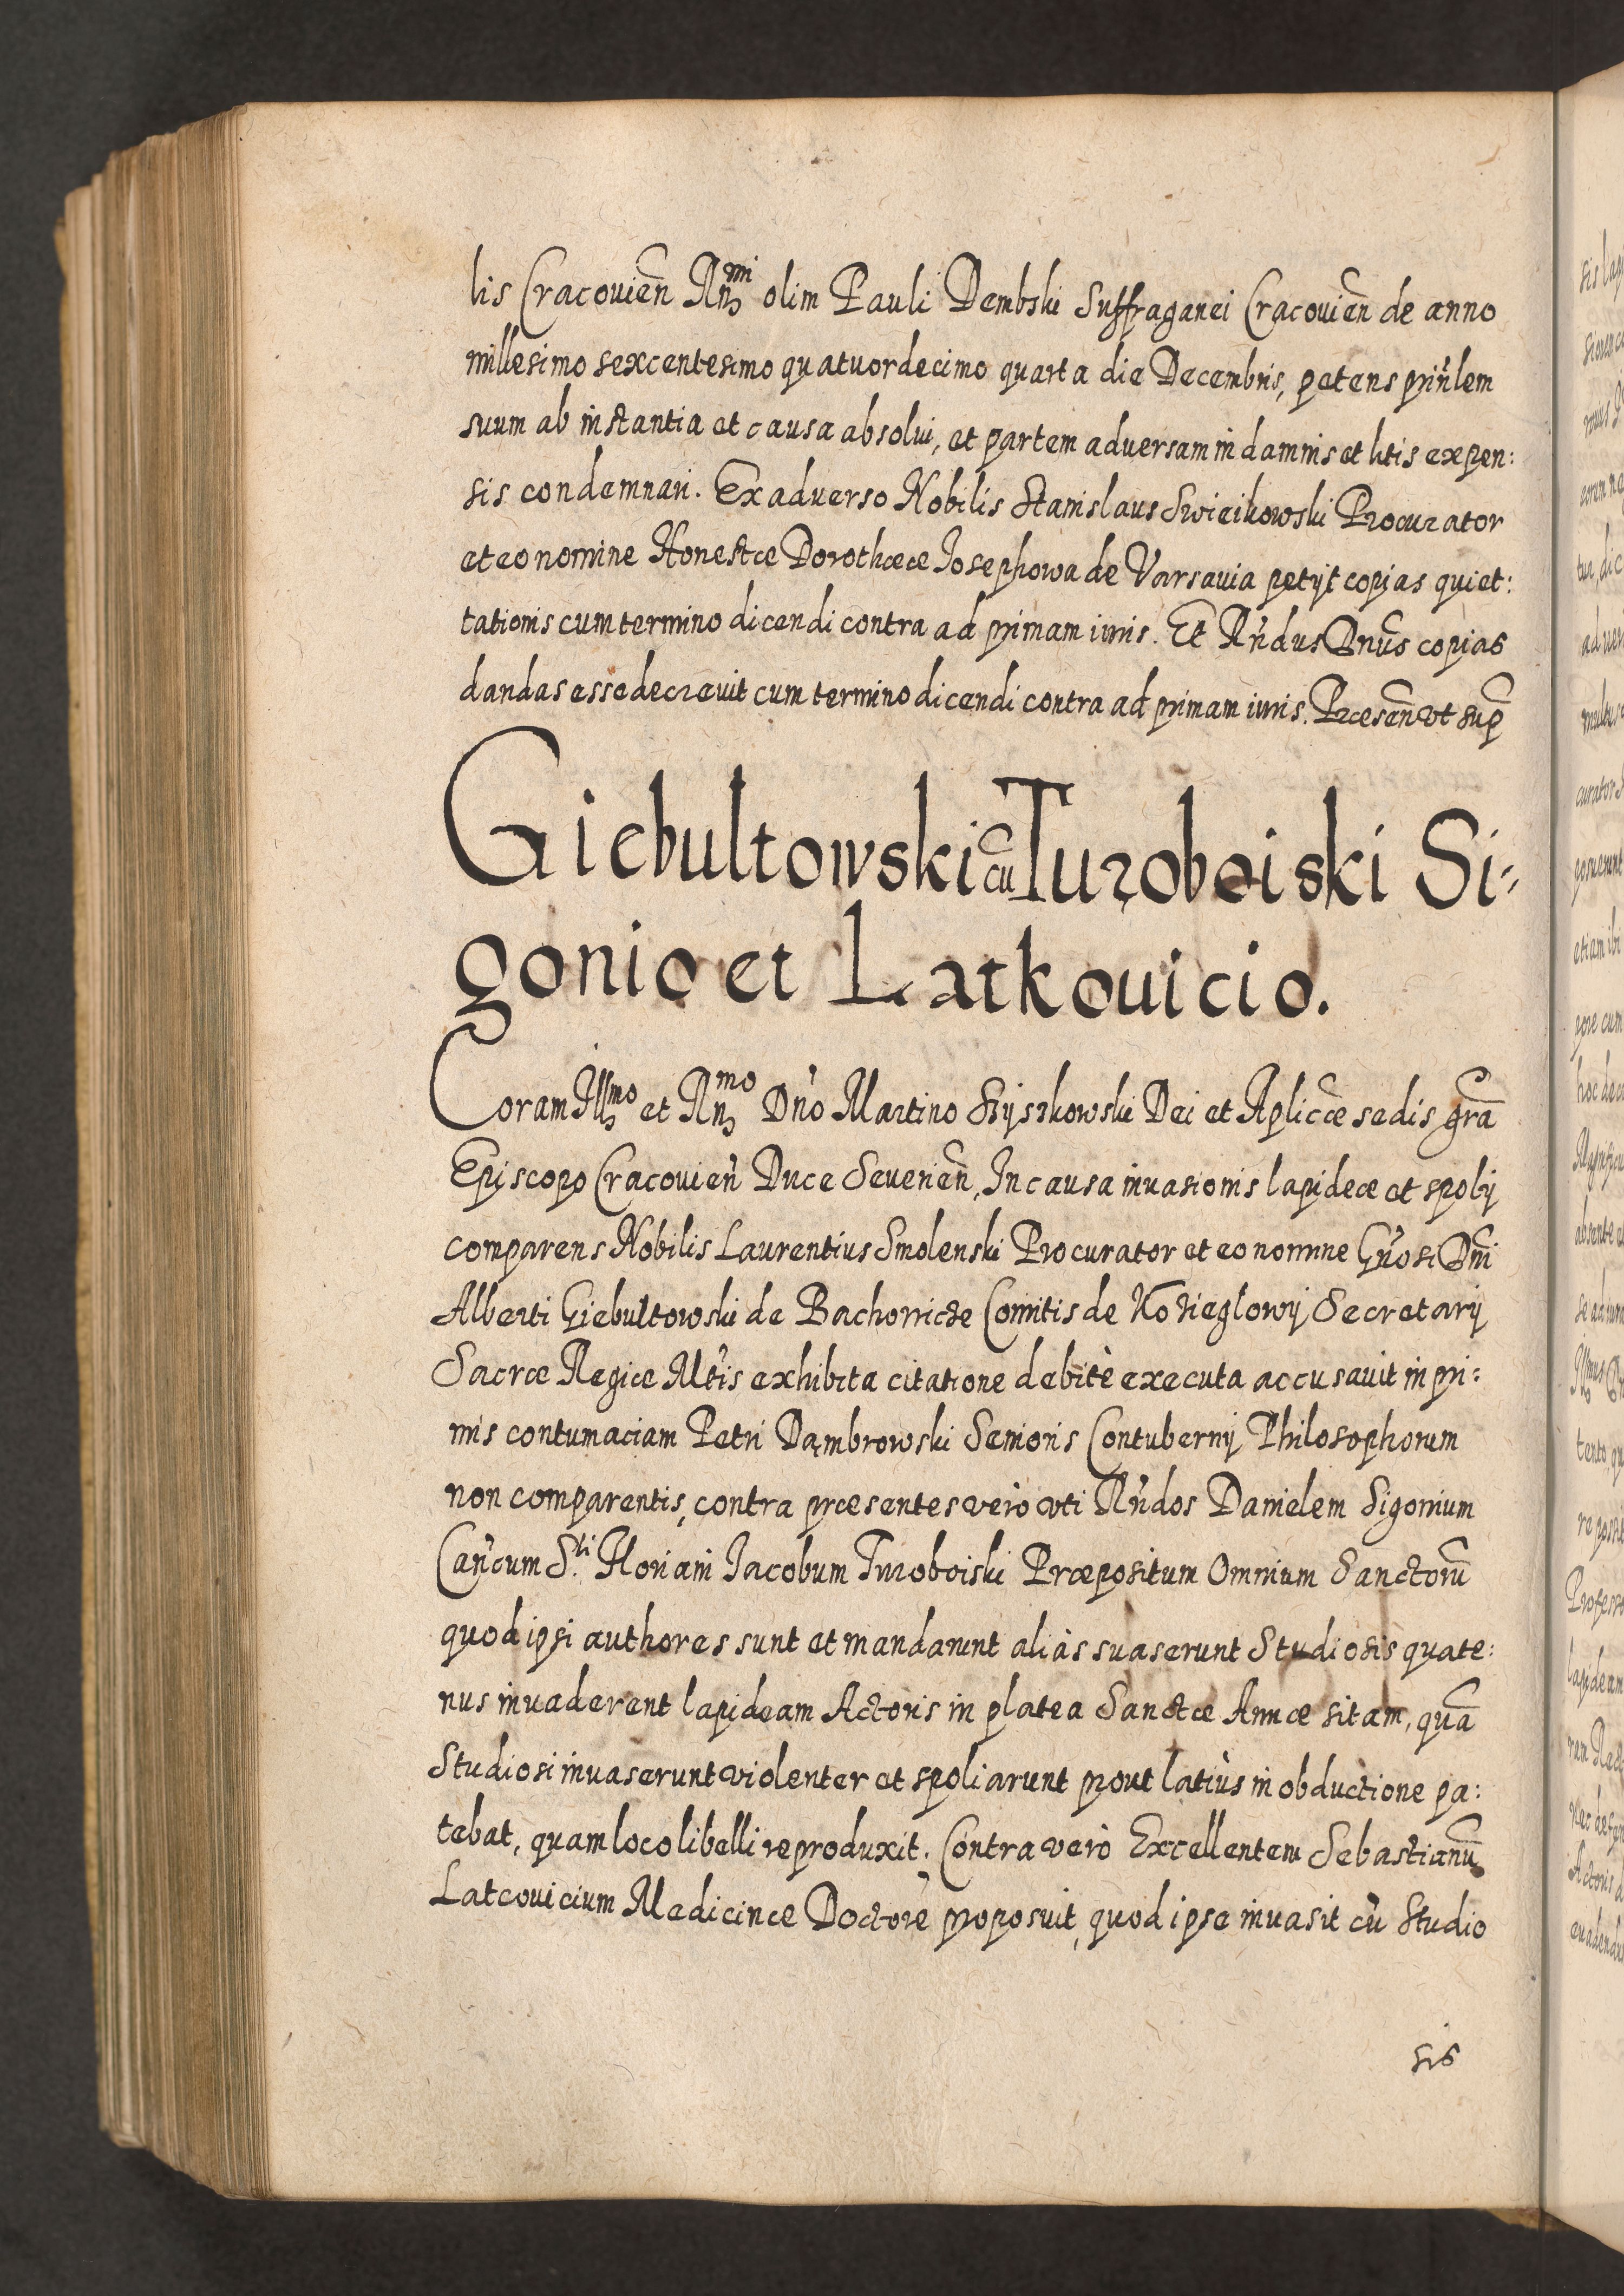 lis Cracovien̄ Rn̄mi olim Pauli Dembski Suffraganei Cracovien̄ de anno
millesimo sexcentesimo quatuordecimo quarta die Decembris, petens prin̄lem
suum ab instantia et causa absolui, et partem aduersam in damnis et litis expen:
sis condemnari. Ex aduerso Nobilis Stanislaus Swieikowski Procurator
et eo nomine Honestæ Dorotheæ Josephowa de Varsauia petijt copias quiet:
tationis cum termino dicendi contra ad primam iuris. Et Rn̄dus Dn̄us copias
dandas esse decreuit cum termino dicendi contra ad primam iuris. Præsen̄ vt sup̄
Giebultowski cū Turoboiski Si-
gonio et Latkouicio.
Coram Illmo et Rn̄mo Dn̄o Martino Szyszkowski Dei et Aplicæ sedis gr̄a
Episcopo Cracovien̄ Duce Seuerien̄, In causa inuasionis lapideæ et spolij
comparens Nobilis Laurentius Smolenski Procurator et eo nomine Gn̄osi Dn̄i
Alberti Giebultowski de Bachowice Comitis de Kozieglowy Secretarij
Sacræ Regiæ Mtis exhibita citatione debitè executa accusauit in pri:
mis contumaciam Petri Dąmbrowski Senioris Contubernij Philosophorum
non comparentis, contra præsentes verò vti Rn̄dos Danielem Sigonium
Can̄cum S.ti Floriani Jacobum Turoboiski Præpositum Omnium Sanctorū
quod ipsi authores sunt et mandarunt aliàs suaserunt Studiosis quate:
nus inuaderent lapideam Actoris in platea Sanctæ Annæ sitam, quā
Studiosi inuaserunt violenter et spoliarunt prout latiùs in obductione pa:
tebat, quam loco libelli reproduxit. Contra verò Excellentem Sebastianū
Latcouicium Medicinæ Doctorē proposuit, quod ipse inuasit cū Studio
sis